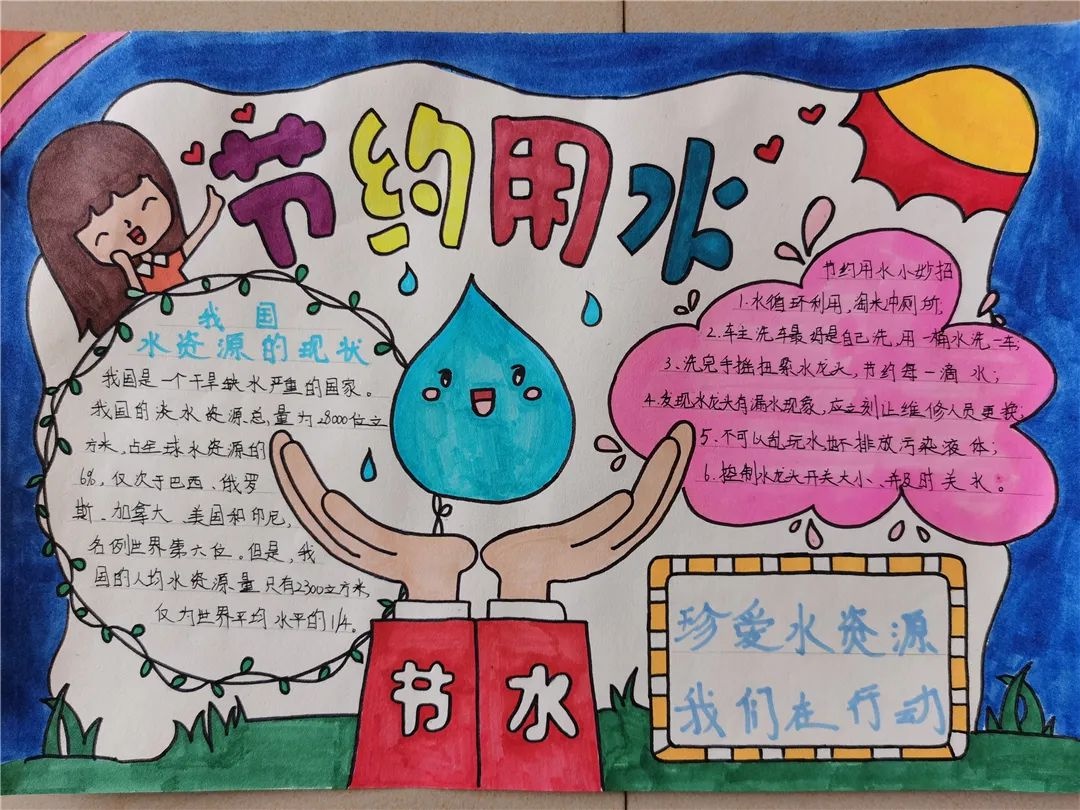 节约用水
我国
水资源的现状
我国是一个干旱缺水严重的国家。
我国的淡水资源总量为28000位立
方米,占全球水资源的
6%,仅次于巴西、俄罗
斯、加拿大、美国和印尼,
名例世界第六位。但是,我
国的人均水资源量只有2300立方米,
仅为世界平均水平的1/4。
节约用水小妙招
1.水循环利用,淘米冲厕所;
2.车主洗车最好是自己洗,用一桶水洗一车;
3、洗完手摇扭紧水龙头,节约每一滴水;
4.发现水龙头有漏水现象,应立刻让维修人员更换;
5、不可以乱玩水、乱排放污染液体;
6、控制水龙头开关大小、并及时关水。
节水
珍爱水资源
我们在行动